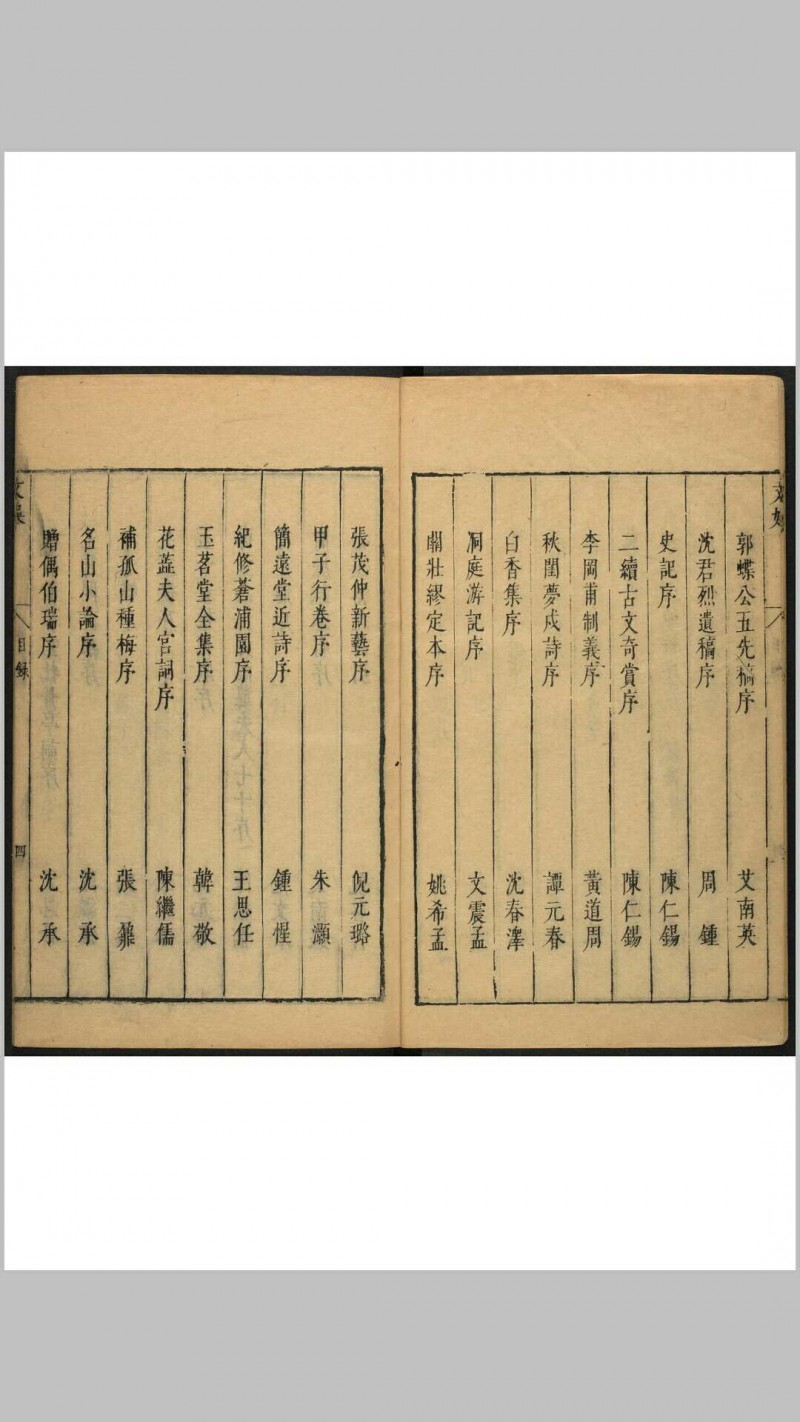 郭蝶公五先稿序 艾南英
沈君烈遺稿序 周鍾
史記序 陳仁錫
二續古文奇賞序 陳仁錫
李岡甫制義序 黃道周
秋閨夢戍詩序 譚元春
白香集序 沈春澤
洞庭游記序 文震孟
關壯繆定本序 姚希孟
張茂仲新藝序 倪元璐
甲子行卷序 朱灝
簡遠堂近詩序 鍾惺
紀修蒼浦園序 王思任
玉茗堂全集序 韓敬
花蕊夫人宮詞序 陳繼儒
補孤山種梅序 張鼐
名山小論序 沈承
贈偶伯瑞序 沈承
目錄
四